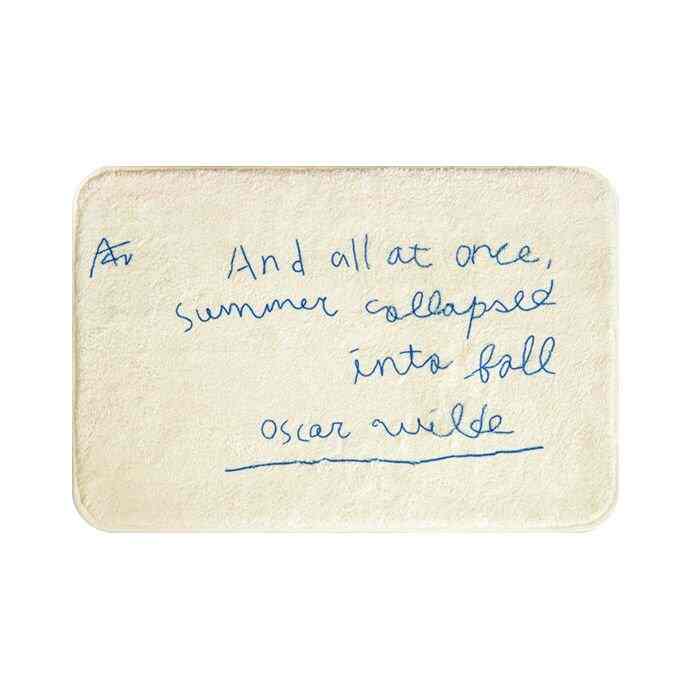 And all at once,
summer collapsed
into fall
oscar wilde